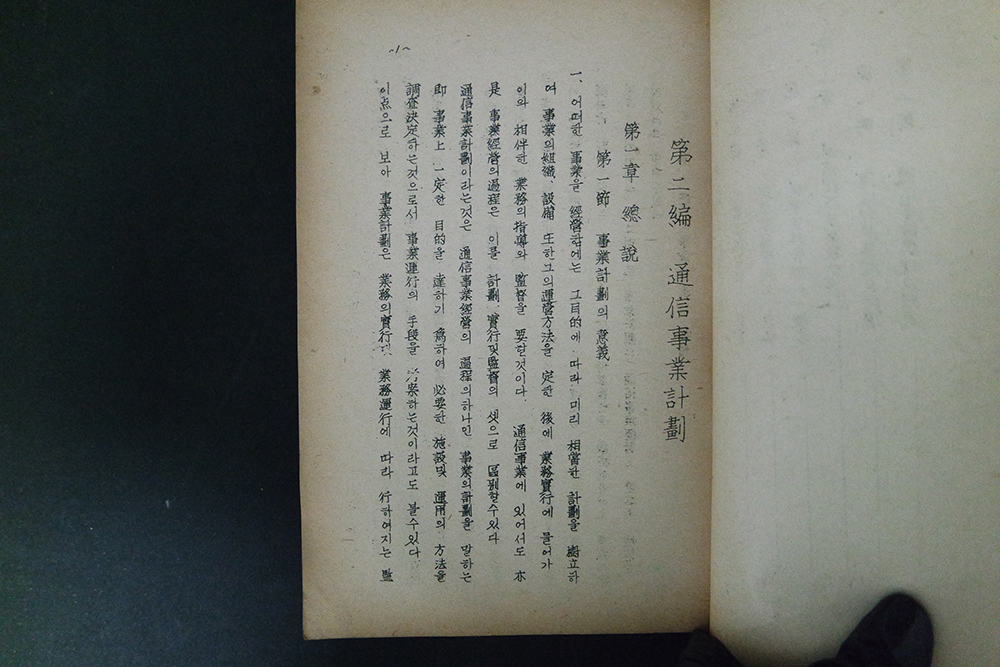 第二編 通信事業計劃
第一章 總說
第一節 事業計劃의 意義
一、어떠한 事業을 經營함에는 그目的에 따라 미리 相當한 計劃을 樹立하
여 事業의組織、設備 또한그의運營方法을 定한 後에 業務實行에 들어가
이와 相伴한 業務의指導와 監督을 要할것이다. 通信事業에 있어서도 亦
是 事業經營의過程은 이를 計劃、實行및監督의 셋으로 區別할수있다
通信事業計劃이라는것은 通信事業經營의 過程의하나인 事業의計劃을 말하는
即 事業上 一定한 目的을 達하기 爲하여 必要한 施設및 運用의 方法을
調査決定하는것으로서 事業運行의 手段을 考案하는것이라고도 볼수있다
이点으로 보아 事業計劃은 業務의實行및 業務運行에 따라 行하여지는 監
~1~